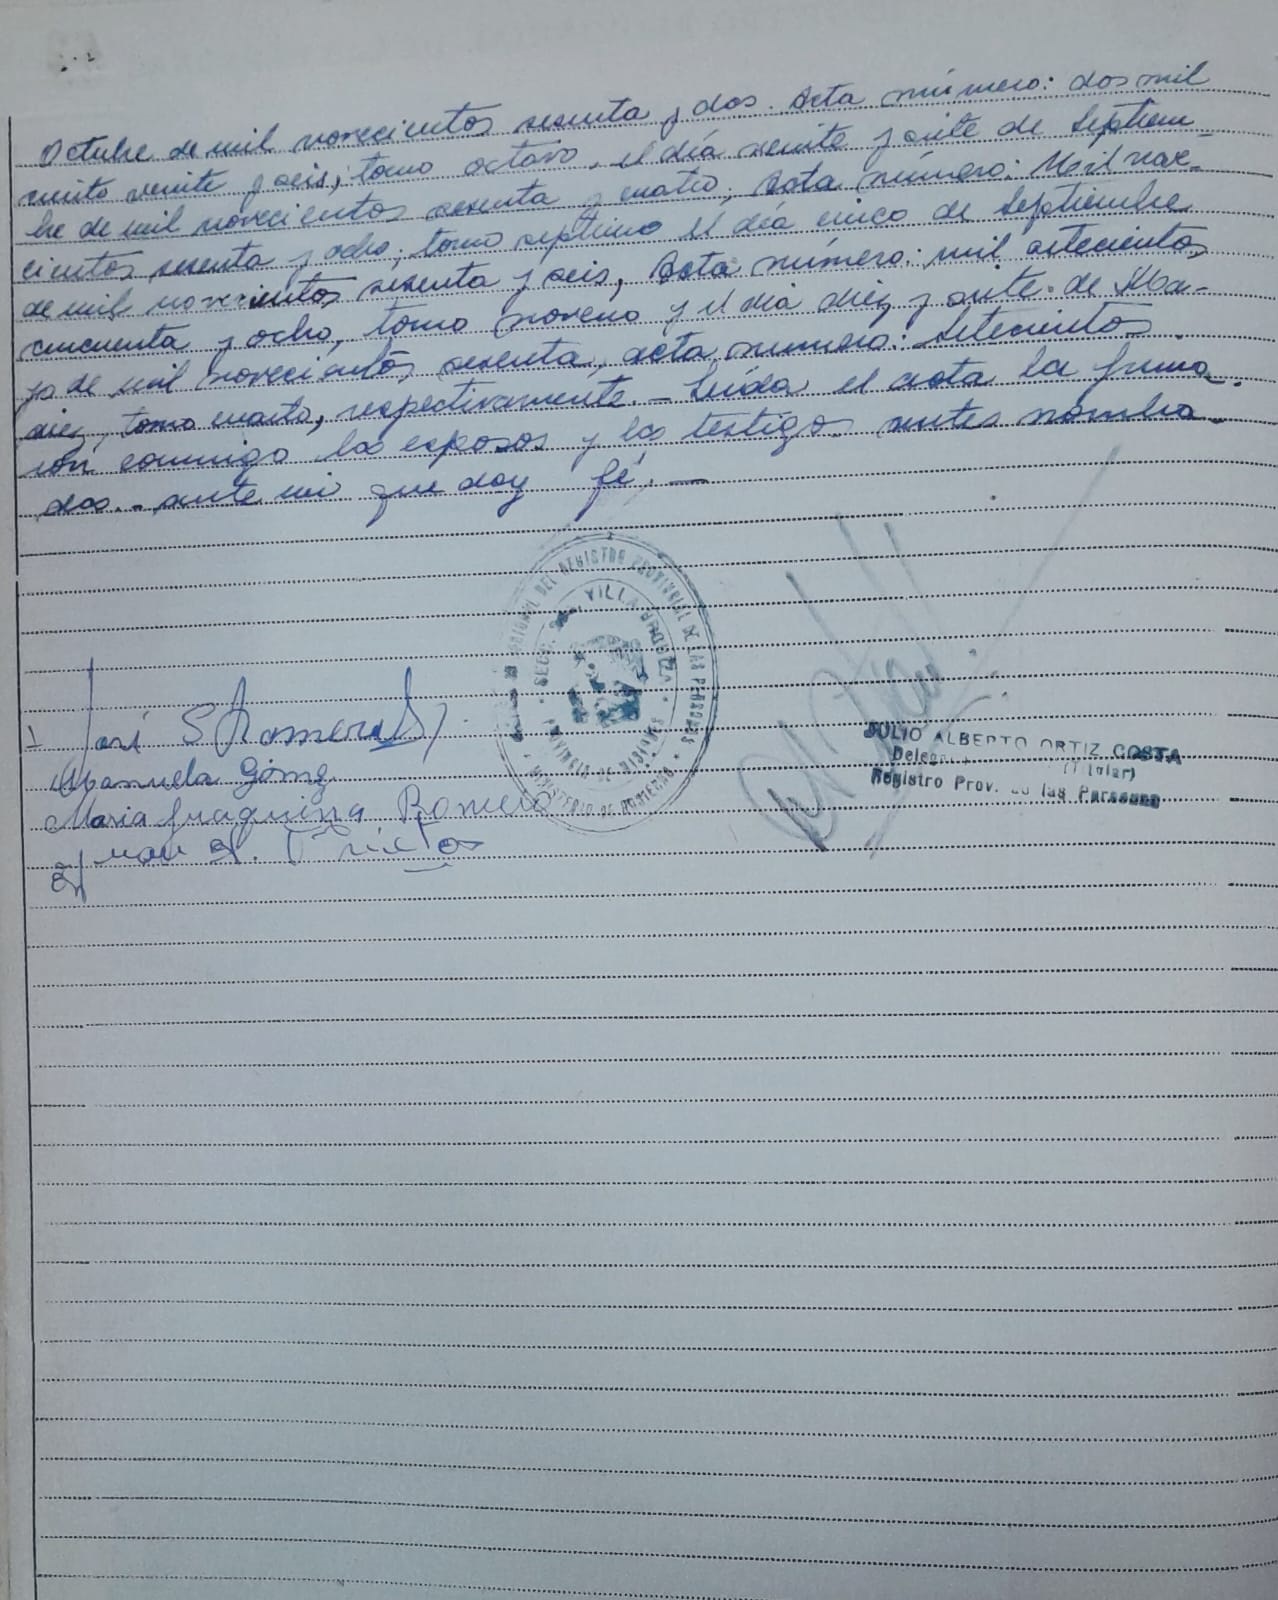 Octubre de mil novecientos sesenta y dos. Acta número: dos mil
ciento veinte y seis, tomo octavo, el día veinte y siete de Septiem-
bre de mil novecientos sesenta y cuatro, Acta número: Mil nove-
cientos sesenta y ocho, tomo septimo el día cinco de Septiembre
de mil novecientos sesenta y seis, Acta número: mil setecientos
cincuenta y ocho, tomo noveno y el día diez y siete de Ma-
yo de mil novecientos sesenta, acta número: Setecientos
diez, tomo cuarto, respectivamente.- Leída el acta la firma-
ron conmigo los esposos y los testigos antes nombra-
dos.- ante mi que doy fé.-
REGISTRO PROVINCIAL DE LAS PERSONAS
SECC. VILLA URQUIZA
PROVINCIA DE MISIONES
MINISTERIO DE GOBIERNO
José S Romero
Manuela Gómez
JULIO ALBERTO ORTIZ COSTA
(Titular)
Registro Prov. de las Personas
Maria Romero
Juan